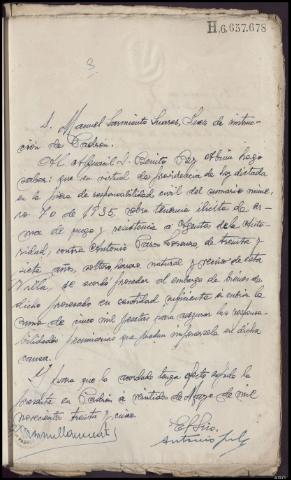 H.6.637.678
3
D. Manuel Sarmiento Suarez, Juez de instruc-
ción de Padron.
Al alguacil D. Benito Rey Abuin hago
saber: que en virtud de providencia de hoy dictada
en la pieza de responsabilidad civil del sumario nume-
ro 40 de 1935, sobre tenencia ilicita de ar-
ma de fuego y resistencia a Agentes de la Auto-
ridad, contra Antonio de treinta y
siete años, soltero, natural y vecino de esta
Villa, se acordó proceder al embargo de bienes de
dicho procesado en cantidad suficiente a cubrir la
suma de cinco mil pesetas para asegurar las responsa-
bilidades pecuniarias que puedan imponersele en dicha
causa.
Y para que lo acordado tenga efecto expido la
presente en Padrón a de Mayo de mil
novecientos treinta y cinco.
El Srio.
Antonio